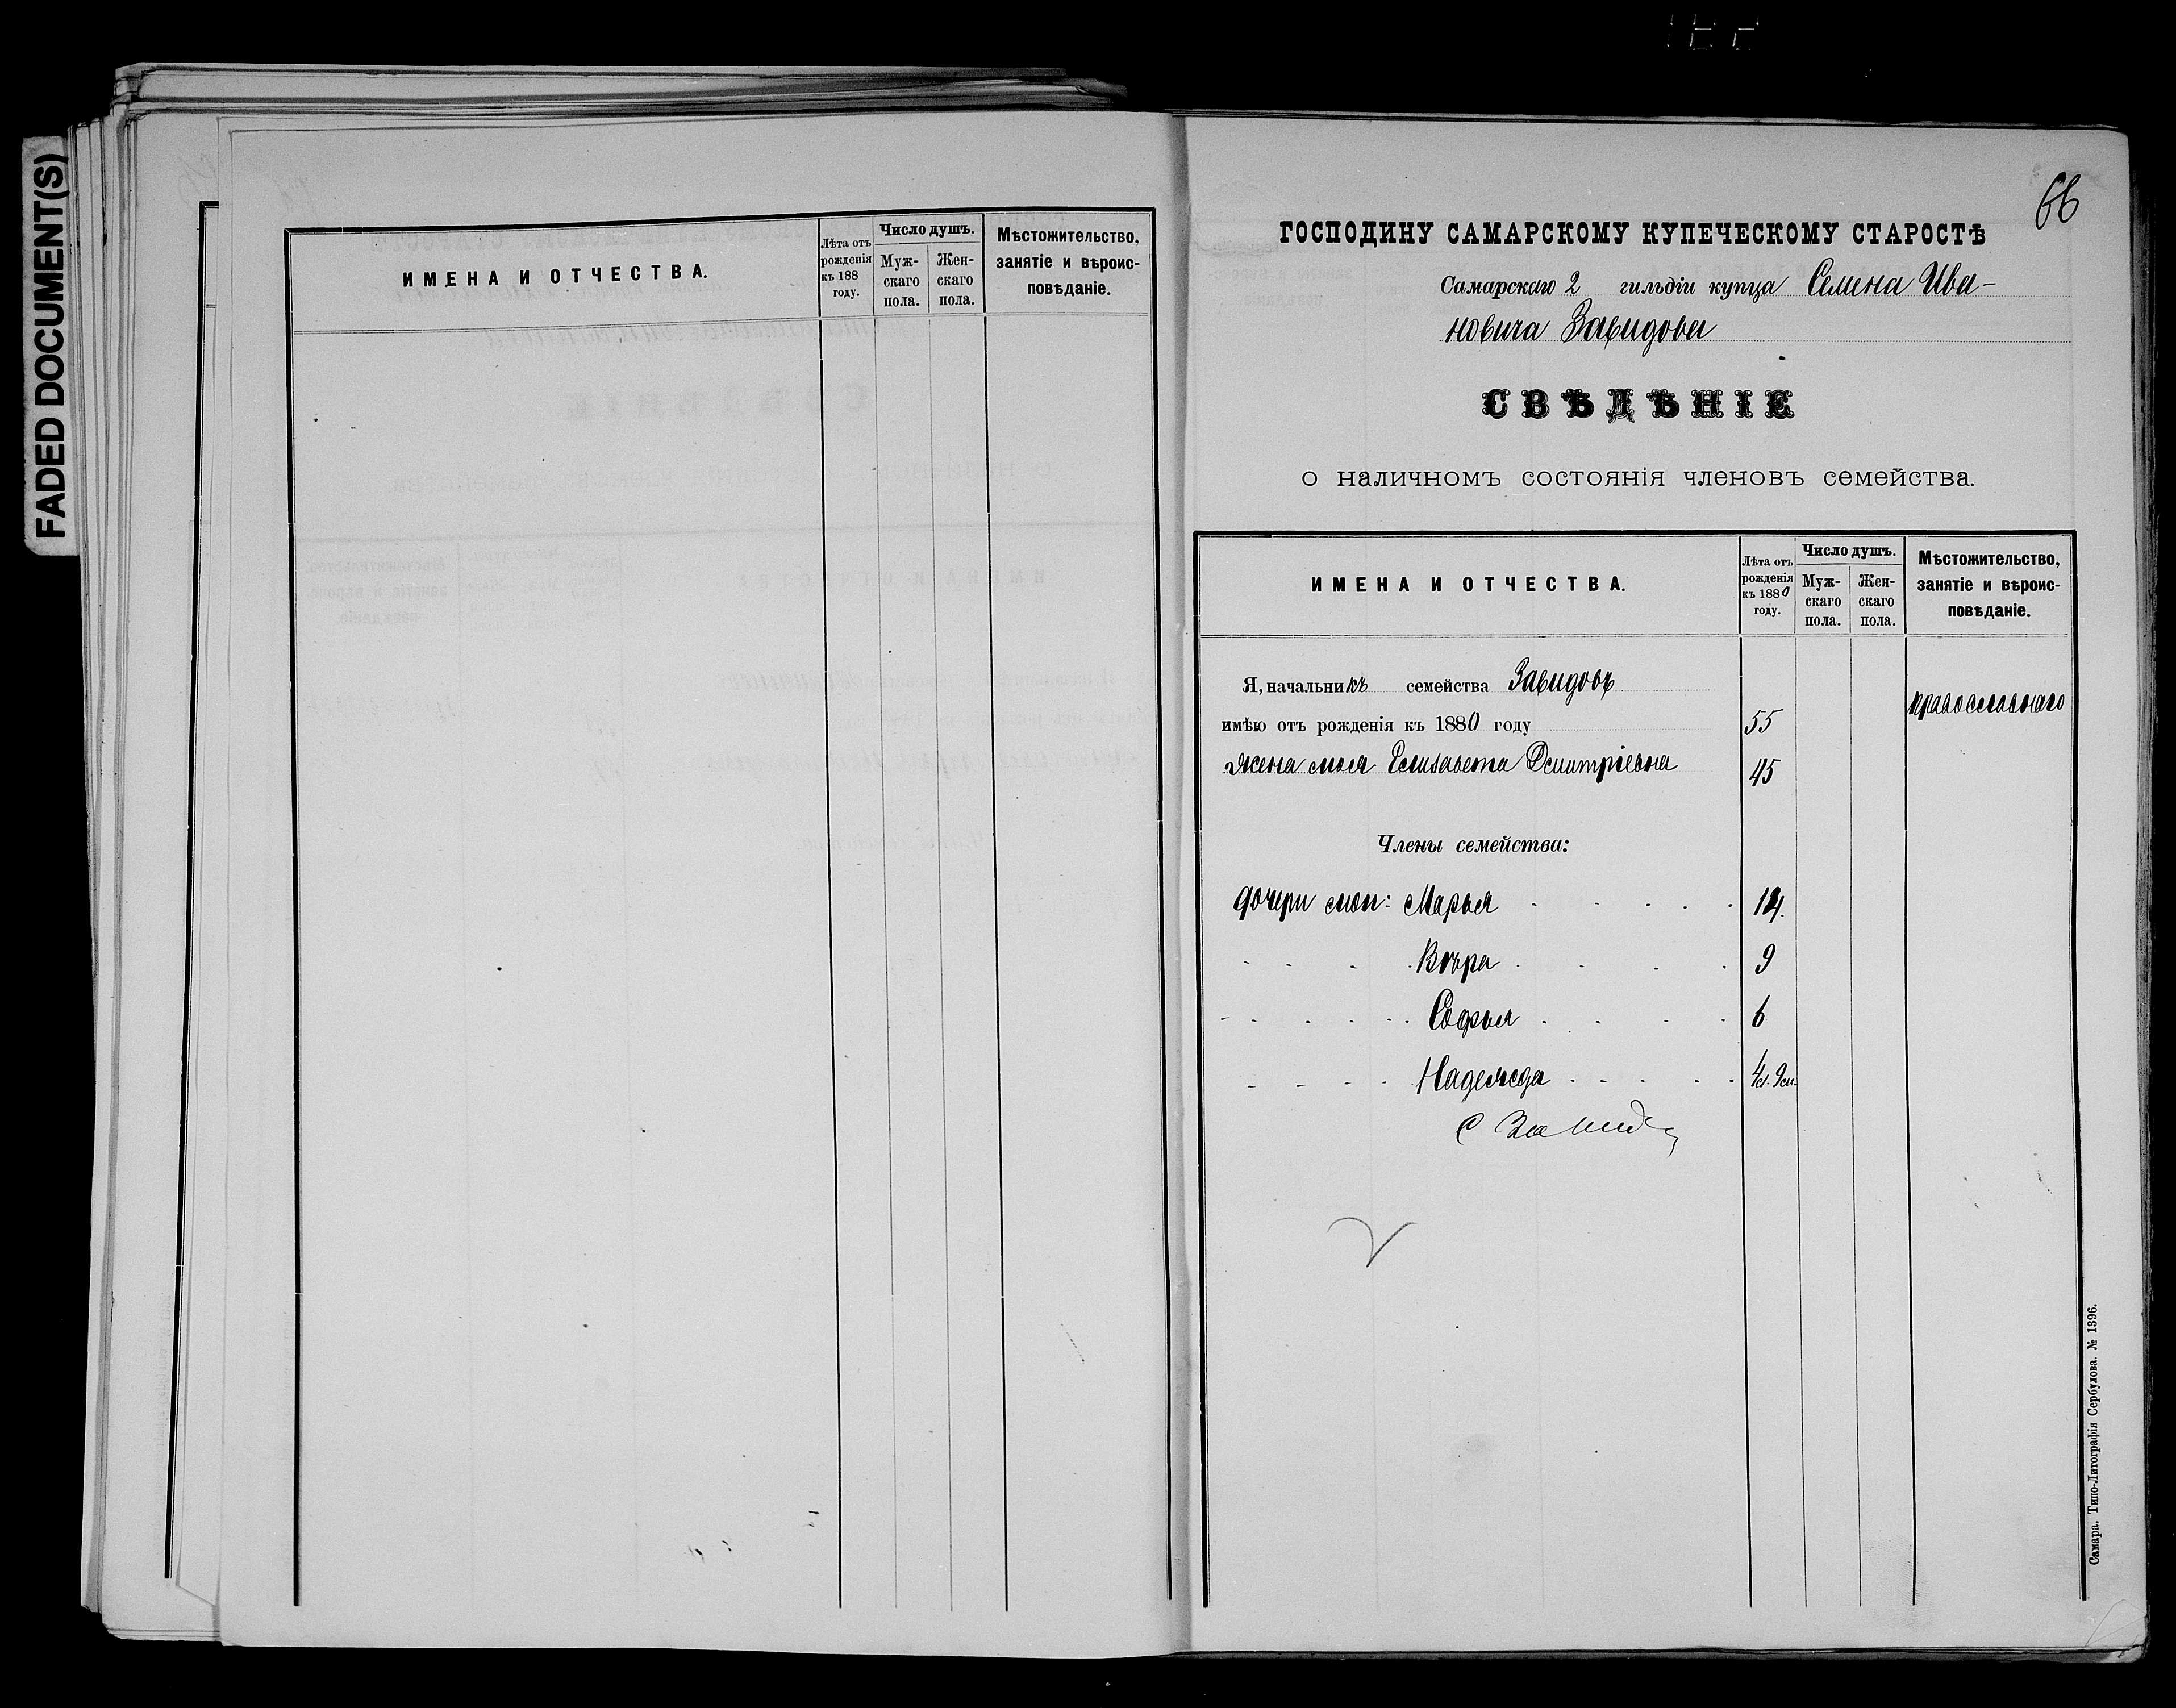 FADED DOCUMENT(S)
ИМЕНА И ОТЧЕСТВА.
Лѣта отъ рожденія къ 188 году.
Число душъ.
Мужскаго пола.
Женскаго пола.
Мѣстожительство, занятіе и вѣроисповѣданіе.
66
ГОСПОДИНУ САМАРСКОМУ КУПЕЧЕСКОМУ СТАРОСТѢ
Самарскаго 2 гильдіи купца Семена Ива-
новича Завидова
СВѢДѢНІЕ
о наличномъ состоянія членовъ семейства.
ИМЕНА И ОТЧЕСТВА.
Лѣта отъ рожденія къ 1880 году.
Число душъ.
Мужскаго пола.
Женскаго пола.
Мѣстожительство, занятіе и вѣроисповѣданіе.
Я, начальникъ семейства Завидовъ
имѣю отъ рожденія къ 1880 году 55 православнаго
жена моя Елизавета Дмитріевна 45
Члены семейства:
дочери мои: Марья 14.
Вѣра 9
Софья 6
Надежда 4л. 9м.
С Завид
Самара. Типо-Литографія Сербулова. № 1396.